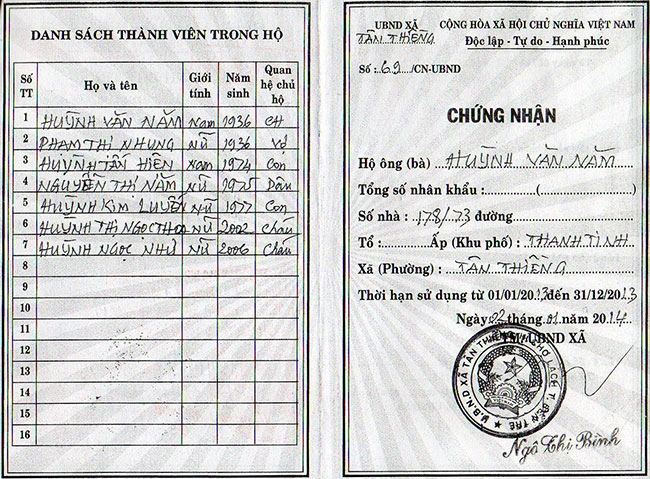 DANH SÁCH THÀNH VIÊN TRONG HỘ
Số TT Họ và tên Giới tính Năm sinh Quan hệ chủ hộ
1 HUỲNH VĂN NĂM Nam 1936 CH
2 PHẠM THỊ NHUNG NỮ 1936 Vợ
3 HUỲNH TẤN HIÊN Nam 1974 Con
4 NGUYỄN THỊ NĂM NỮ 1975 Dâu
5 HUỲNH KIM LUYẾN NỮ 1977 Con
6 HUỲNH THỊ NGỌC THOA NỮ 2002 Cháu
7 HUỲNH NGỌC NHƯ NỮ 2006 Cháu
8
9
10
11
12
13
14
15
16
UBND XÃ CỘNG HÒA XÃ HỘI CHỦ NGHĨA VIỆT NAM
TÂN THIỀNG Độc lập - Tự do - Hạnh phúc
Số : 69 /CN-UBND
CHỨNG NHẬN
Hộ ông (bà) HUỲNH VĂN NĂM
Tổng số nhân khẩu : ( )
Số nhà : 178/73 đường
Tổ : Ấp (Khu phố) : THANH TÌNH
Xã (Phường) : TÂN THIỀNG
Thời hạn sử dụng từ 01/01/2013 đến 31/12/2013
Ngày 02 tháng 01 năm 2014
TM/UBND XÃ
U.B.N.D XÃ TÂN THIỀNG H. CHỢ LÁCH T. BẾN TRE
Ngô Thị Bình